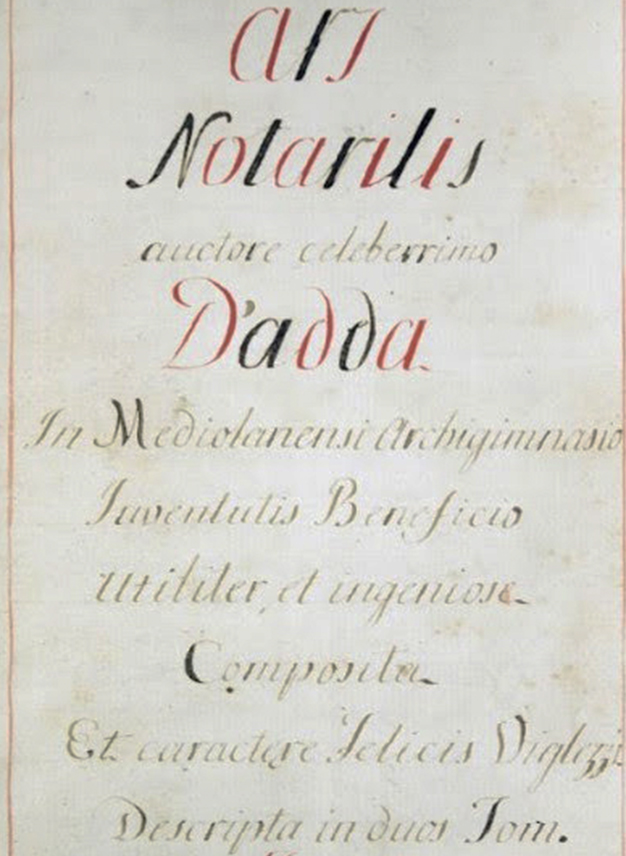 Ars
Notarilis
auctore celeberrimo
D'adda.
In Mediolanensi Archigimnasio
Iuventutis Beneficio
Utiliter, et ingeniose
Composita
Et caractere Felicis Viglezzi
Descripta in duos Tom.